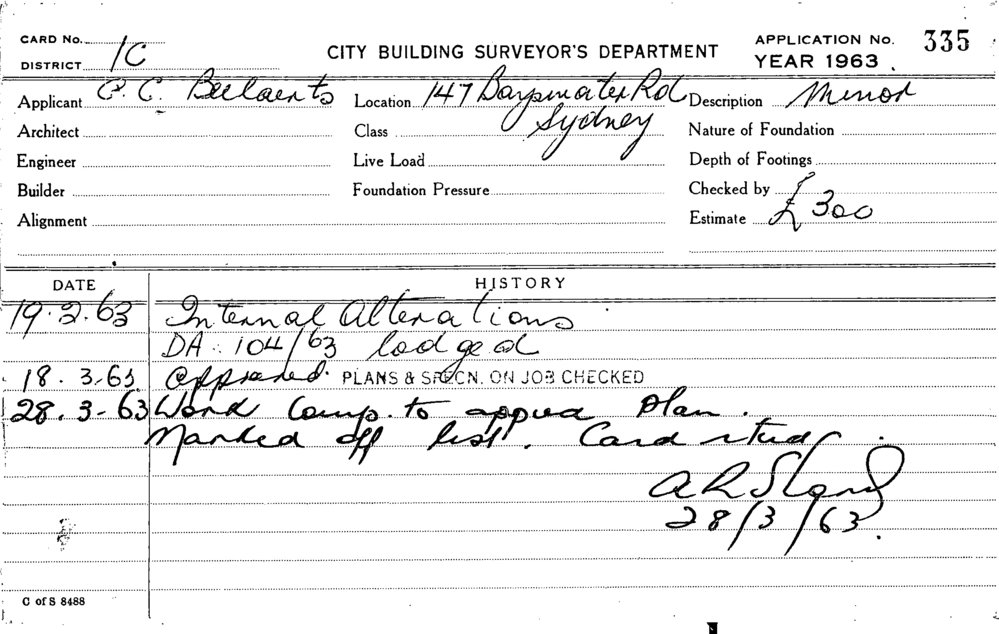 CARD No.
DISTRICT 1C
CITY BUILDING SURVEYOR'S DEPARTMENT
APPLICATION No. 335
YEAR 1963
Applicant P. C. Beelaerts Location 147 Bayswater Rd Description Minor
Architect Class Sydney Nature of Foundation
Engineer Live Load Depth of Footings
Builder Foundation Pressure Checked by
Alignment Estimate £300
DATE HISTORY
19.2.63 Internal Alterations
DA. 104/63 lodged
18.3.63 Approved. PLANS & SPECN. ON JOB CHECKED
28.3-63 Work Comp. to apprd Plan.
Marked off list. Card
28/3/63.
C of S 8488